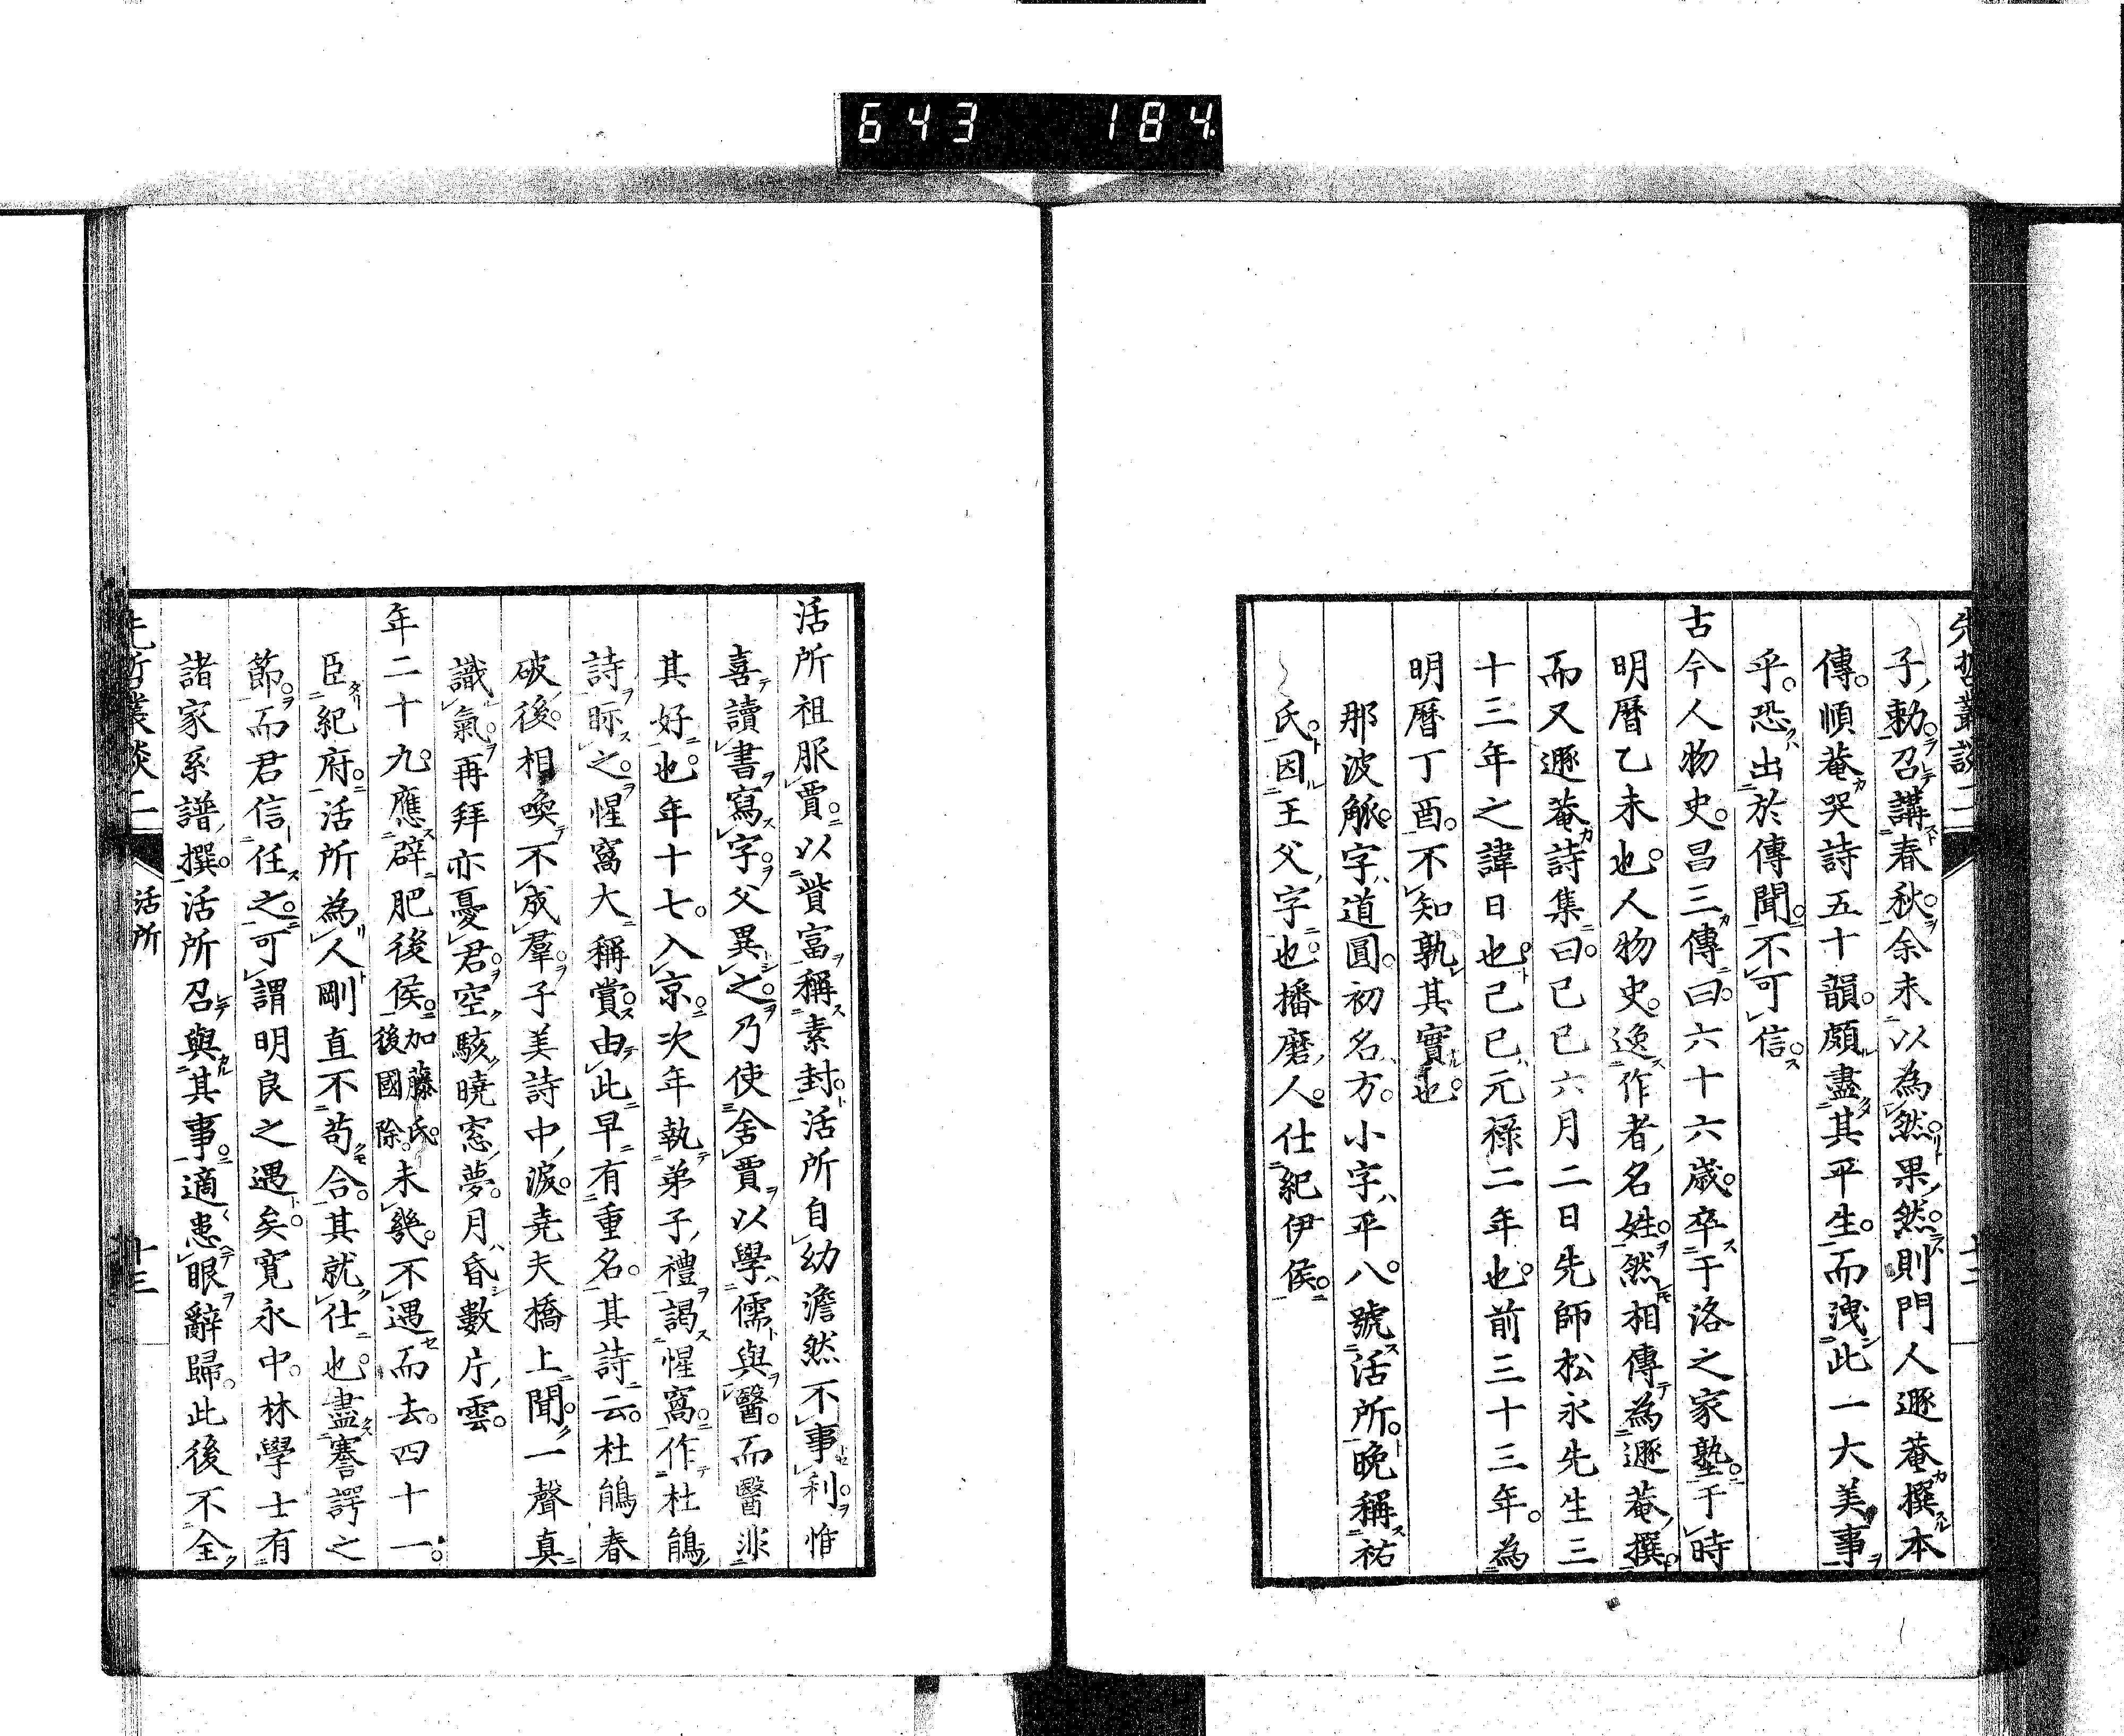 643 184
先哲叢談二
子勅召講春秋余未以為然果然則門人遯菴撰本
傳順菴哭詩五十韻頗盡其平生而洩此一大美事
乎恐出於傳聞不可信
古今人物史昌三傳曰六十六歲卒于洛之家塾于時
明曆乙未也人物史逸作者名姓然相傳為遯菴撰
而又遯菴詩集曰己巳六月二日先師松永先生三
十三年之諱日也己巳元祿二年也前三十三年為
明曆丁酉不知孰其實也
那波觚字道圓初名方小字平八號活所晚稱祐
氏因王父字也播磨人仕紀伊侯
活所祖服賈以貲富稱素封活所自幼澹然不事利惟
喜讀書寫字父異之乃使舍賈以學儒與醫而醫非
其好也年十七入京次年執弟子禮謁惺窩作杜鵑
詩眎之惺窩大稱賞由此早有重名其詩云杜鵑春
破後相喚不成羣子美詩中淚堯夫橋上聞一聲真
識氣再拜亦憂君空駭曉窓夢月昏數片雲
年二十九應辟肥後侯加藤氏後國除未幾不遇而去四十一
臣紀府活所為人剛直不苟合其就仕也盡謇諤之
節而君信任之可謂明良之遇矣寬永中林學士有
諸家系譜撰活所召與其事適患眼辭歸此後不全
先哲叢談二
活所
十三